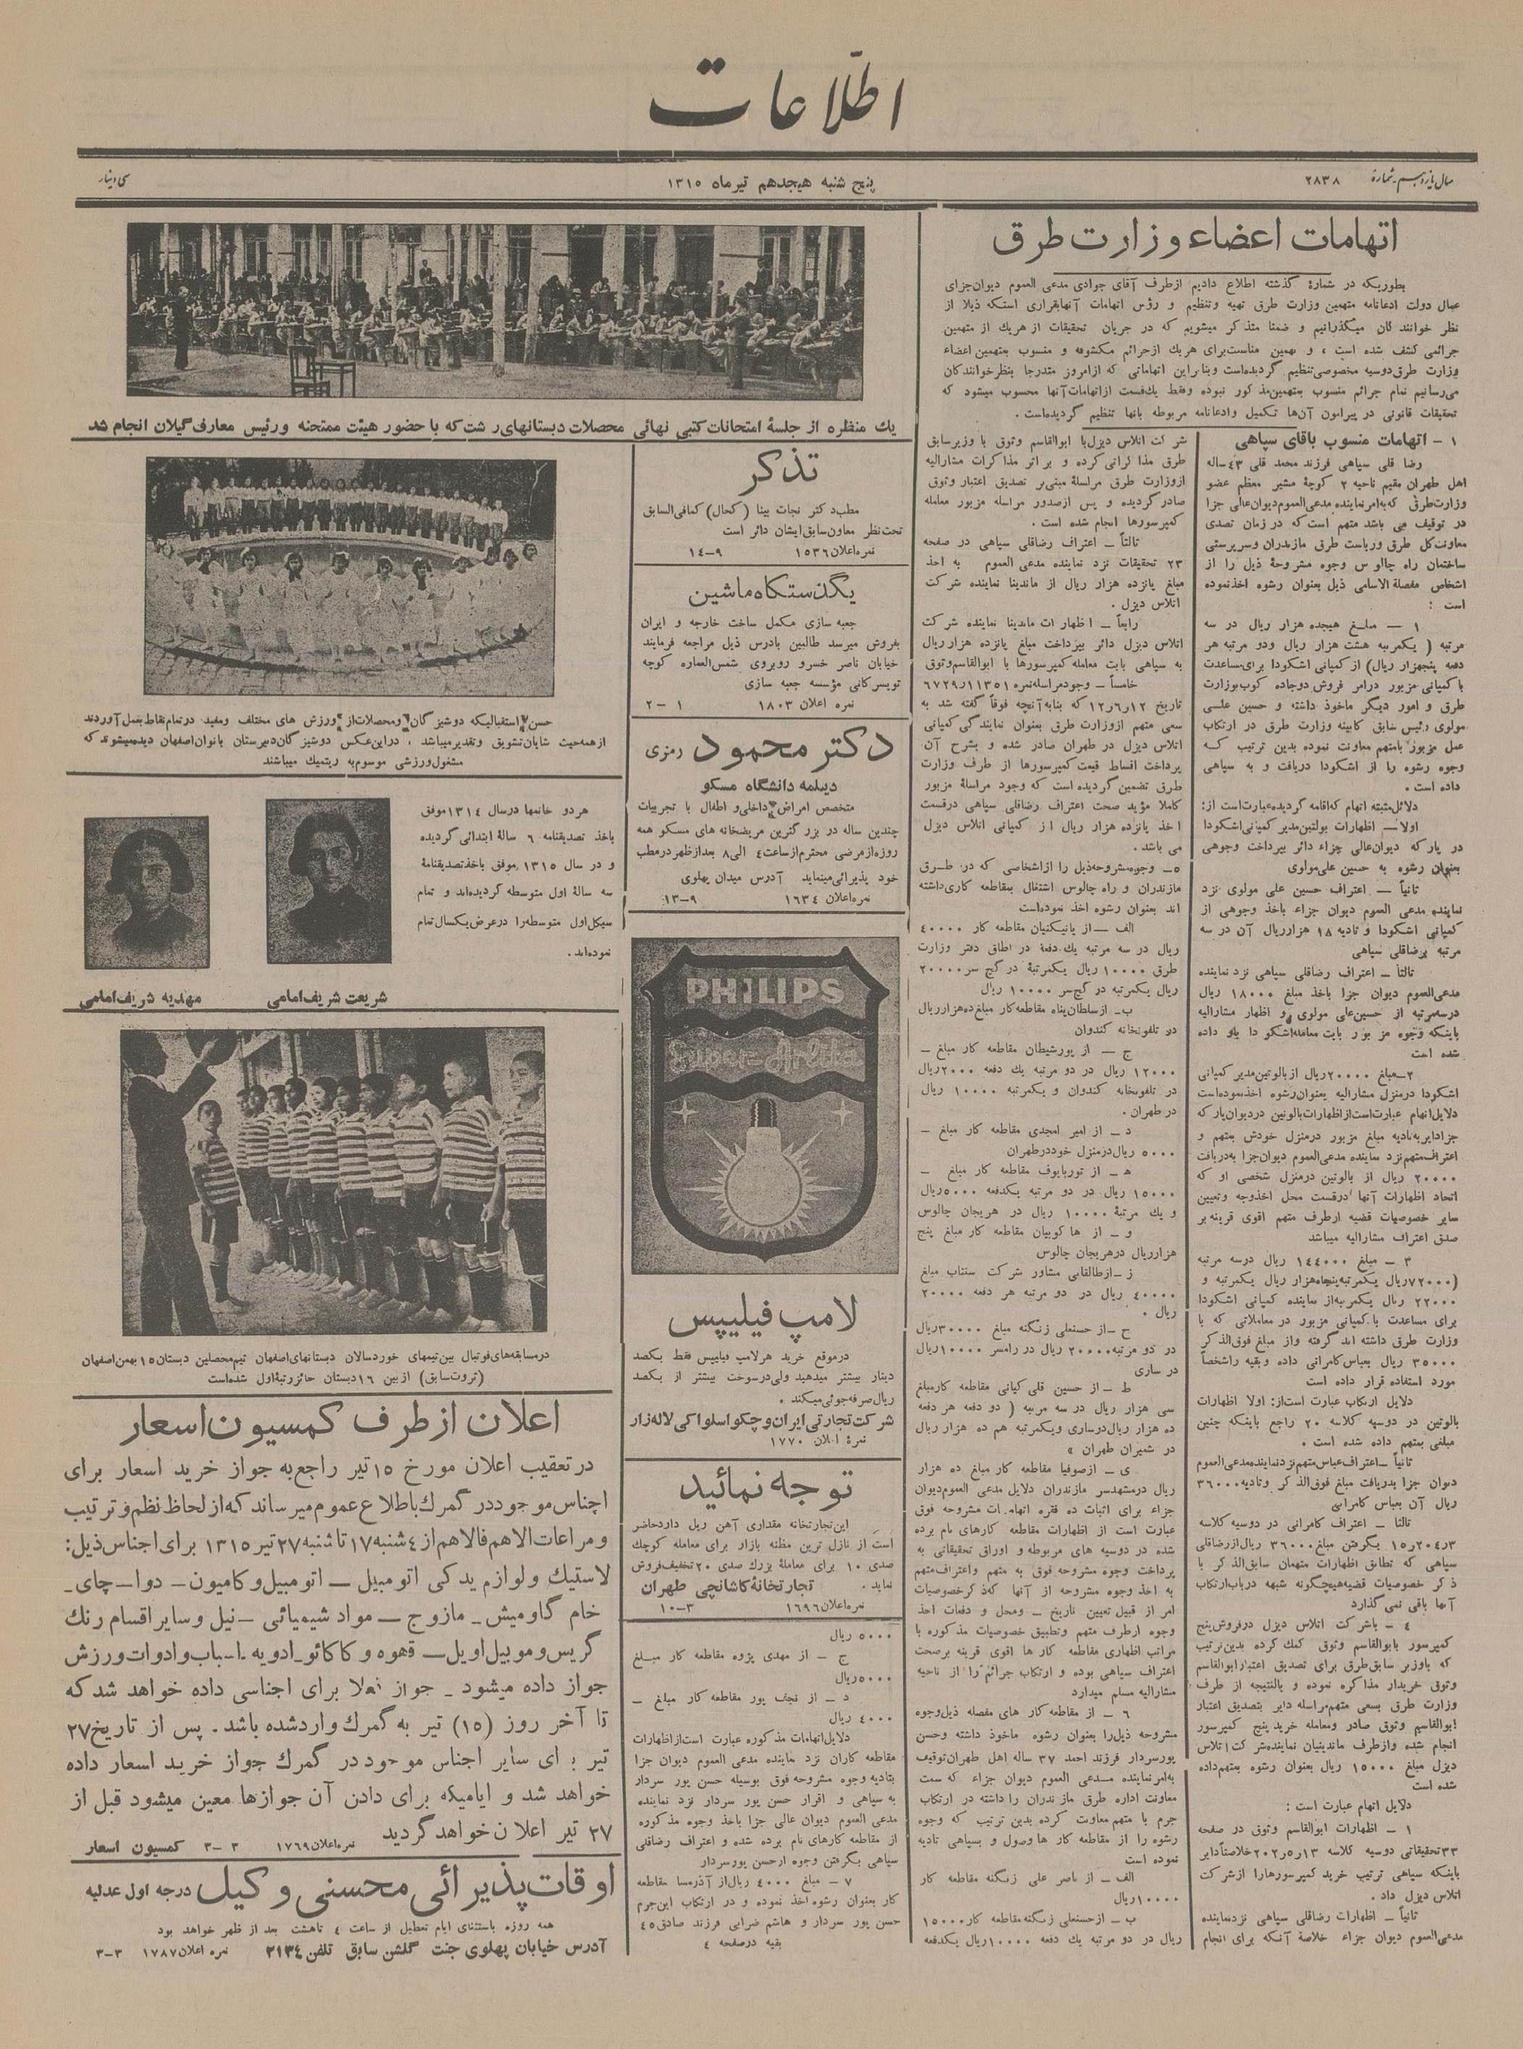 اطلاعات
سال یازدهم ـ شماره ۲۸۳۸
پنج شنبه هیجدهم تیر ماه ۱۳۱۵
سی دینار
اتهامات اعضاء وزارت طرق
بطوریکه در شمارهٔ گذشته اطلاع دادیم از طرف آقای جوادی مدعی العموم دیوان جزای
عمال دولت ادعانامه متهمین وزارت طرق تهیه و تنظیم و رؤس اتهامات آنها بقراری استکه ذیلا از
نظر خوانندگان میگذرانیم و ضمنا متذکر میشویم که در جریان تحقیقات از هریک از متهمین
جرائمی کشف شده است ، و بهمین مناسبت برای هر یک از جرائم مکشوفه و منسوب بمتهمین اعضاء
وزارت طرق دوسیه مخصوصی تنظیم گردیده است و بنابراین اتهاماتی که از امروز متدرجا بنظر خوانندگان
می رسانیم تمام جرائم منسوب بمتهمین مذکور نبوده و فقط یک قسمت از اتهامات آنها محسوب میشود که
تحقیقات قانونی در پیرامون آن ها تکمیل و ادعانامه مربوطه بانها تنظیم گردیده است .
۱ – اتهامات منسوب باقای سپاهی
رضا قلی سپاهی فرزند محمد قلی ۴۳ ساله
اهل طهران مقیم ناحیه ۲ کوچهٔ مشیر معظم عضو
وزارت طرق که بامر نماینده مدعی العموم دیوان عالی جزا
در توقیف می باشد متهم است که در زمان تصدی
معاونت کل طرق و ریاست طرق مازندران و سرپرستی
ساختمان راه چالوس وجوه مشروحهٔ ذیل را از
اشخاص مفصلة الاسامی ذیل بعنوان رشوه اخذ نموده
است :
۱ — مبلغ هیجده هزار ریال در سه
مرتبه ( یکمرتبه هشت هزار ریال و دو مرتبه هر
دفعه پنجهزار ریال) از کمپانی اشکودا برای مساعدت
با کمپانی مزبور در امر فروش دو جاده کوب بوزارت
طرق و امور دیگر ماخوذ داشته و حسین علی
مولوی رئیس سابق کابینه وزارت طرق در ارتکاب
عمل مزبور بامتهم معاونت نموده بدین ترتیب که
وجوه رشوه را از اشکودا دریافت و به سپاهی
داده است .
دلائل مثبته اتهام که اقامه گردیده عبارت است از:
اولا — اظهارات بولتین مدیر کمپانی اشکودا
در پارکه دیوان عالی جزاء دائر بپرداخت وجوهی
بعنوان رشوه به حسین علی مولوی
ثانیاً — اعتراف حسین علی مولوی نزد
نماینده مدعی العموم دیوان جزاء باخذ وجوهی از
کمپانی اشکودا و تادیه ۱۸ هزار ریال آن در سه
مرتبه برضاقلی سپاهی
ثالثاً – اعتراف رضاقلی سپاهی نزد نماینده
مدعی العموم دیوان جزا باخذ مبلغ ۱۸۰۰۰ ریال
در سه مرتبه از حسین علی مولوی و اظهار مشارالیه
باینکه وجوه مزبور بابت معامله اشکودا باو داده
شده است
۲ – مبلغ ۲۰۰۰۰ ریال از بالوتین مدیر کمپانی
اشکودا در منزل مشارالیه بعنوان رشوه اخذ نموده است
دلایل اتهام عبارت است از اظهارات بالوتین در دیوان پارکه
جزا دایر به تادیه مبلغ مزبور در منزل خودش بمتهم و
اعتراف متهم نزد نماینده مدعی العموم دیوان جزا به دریافت
۲۰۰۰۰ ریال از بالوتین در منزل شخصی او که
اتحاد اظهارات آنها در قسمت محل اخذ وجه و تعیین
سایر خصوصیات قضیه از طرف متهم اقوی قرینه بر
صدق اعتراف مشارالیه میباشد
۳ – مبلغ ۱۴۴۰۰۰ ریال در سه مرتبه
(۷۲۰۰۰ ریال یکمرتبه پنجاه هزار ریال یکمرتبه و
۲۲۰۰۰ ریال یکمرتبه از نماینده کمپانی اشکودا
برای مساعدت با کمپانی مزبور در معاملاتی که با
وزارت طرق داشته اند گرفته و از مبلغ فوق الذکر
۳۵۰۰۰ ریال بعباس کامرانی داده و بقیه را شخصاً
مورد استفاده قرار داده است
دلایل ارتکاب عبارت است از: اولا اظهارات
بالوتین در دوسیه کلاسه ۲۰ راجع باینکه چنین
مبلغی بمتهم داده شده است .
ثانیاً – اعتراف عباس متهم نزد نماینده مدعی العموم
دیوان جزا بدریافت مبلغ فوق الذکر و تادیه ۳۶۰۰۰
ریال آن بعباس کامرانی
ثالثا – اعتراف کامرانی در دوسیه کلاسه
۳ر۲۰۴ر۱۵ بگرفتن مبلغ ۳۶۰۰۰ ریال از رضاقلی
سپاهی که تطابق اظهارات متهمان سابق الذکر با
ذکر خصوصیات قضیه هیچگونه شبهه در باب ارتکاب
آنها باقی نمی گذارد
۴ – با شرکت اتلاس دیزل در فروش پنج
کمپرسور بابوالقاسم وثوق کمک کرده بدین ترتیب
که باوزیر سابق طرق برای تصدیق اعتبار ابوالقاسم
وثوق خریدار مذاکره نموده و بالنتیجه از طرف
وزارت طرق بسعی متهم مراسله دایر بتصدیق اعتبار
ابوالقاسم وثوق صادر و معامله خرید پنج کمپرسور
انجام شده و از طرف ماندینیان نماینده شرکت اتلاس
دیزل مبلغ ۱۵۰۰۰ ریال بعنوان رشوه بمتهم داده
شده است
دلایل اتهام عبارت است :
۱ – اظهارات ابوالقاسم وثوق در صفحه
۳۳ تحقیقاتی دوسیه کلاسه ۱۳ر۵ر۲۰۲ خلاصتاً دایر
باینکه سپاهی ترتیب خرید کمپرسورها را از شرکت
اتلاس دیزل داد .
ثانیاً – اظهارات رضاقلی سپاهی نزد نماینده
مدعی العموم دیوان جزاء خلاصة آنکه برای انجام
شرکت اتلاس دیزل با ابوالقاسم وثوق با وزیر سابق
طرق مذاکراتی کرده و بر اثر مذاکرات مشارالیه
از وزارت طرق مراسلهٔ مبنی بر تصدیق اعتبار وثوق
صادر گردیده و پس از صدور مراسله مزبور معامله
کمپرسورها انجام شده است .
ثالثاً – اعتراف رضاقلی سپاهی در صفحه
۲۳ تحقیقات نزد نماینده مدعی العموم به اخذ
مبلغ پانزده هزار ریال از ماندینا نماینده شرکت
اتلاس دیزل .
رابعاً – اظهارات ماندینا نماینده شرکت
اتلاس دیزل دائر بپرداخت مبلغ پانزده هزار ریال
به سپاهی بابت معامله کمپرسورها با ابوالقاسم وثوق
خامساً – وجود مراسله نمره ۱۱۳۵۱ر۶۷۲۹
تاریخ ۱۲ر۶ر۱۲ که بنابه آنچه فوقاً گفته شد به
سعی متهم از وزارت طرق بعنوان نمایندگی کمپانی
اتلاس دیزل در طهران صادر شده و بشرح آن
پرداخت اقساط قیمت کمپرسورها از طرف وزارت
طرق تضمین گردیده است که وجود مراسلهٔ مزبور
کاملا مؤید صحت اعتراف رضاقلی سپاهی در قسمت
اخذ پانزده هزار ریال از کمپانی اتلاس دیزل
می باشد .
۵ – وجوه مشروحه ذیل را از اشخاصی که در طرق
مازندران و راه چالوس اشتغال بمقاطعه کاری داشته
اند بعنوان رشوه اخذ نموده است
الف — از یانیکنیان مقاطعه کار ۴۰۰۰۰
ریال در سه مرتبه یک دفعه در اطاق دفتر وزارت
طرق ۱۰۰۰۰ ریال یکمرتبهٔ در گچ سر ۲۰۰۰۰
ریال یکمرتبه در گچ سر ۱۰۰۰۰ ریال
ب – از سلطان پناه مقاطعه کار مبلغ ده هزار ریال
در تلفونخانه کندوان
ج — از پورشیطان مقاطعه کار مبلغ –
۱۲۰۰۰ ریال در دو مرتبه یک دفعه ۲۰۰۰ ریال
در تلفونخانه کندوان و یکمرتبه ۱۰۰۰۰ ریال
در طهران .
د – از امیر امجدی مقاطعه کار مبلغ –
۵۰۰۰ ریال در منزل خود در طهران
ه – از توربایوف مقاطعه کار مبلغ –
۱۵۰۰۰ ریال در دو مرتبه یکدفعه ۵۰۰۰ ریال
و یک مرتبهٔ ۱۰۰۰۰ ریال در هریجان چالوس
و – از هاکوپیان مقاطعه کار مبلغ پنج
هزار ریال در هریجان چالوس
ز – از طالقانی مشاور شرکت سنتاب مبلغ
۴۰۰۰۰ ریال در دو مرتبه هر دفعه ۲۰۰۰۰
ریال .
ح – از حسنعلی زنگنه مبلغ ۳۰۰۰۰ ریال
در دو مرتبه ۲۰۰۰۰ ریال در رامسر ۱۰۰۰۰ ریال
در ساری
ط – از حسین قلی کیانی مقاطعه کار مبلغ
سی هزار ریال در سه مرتبه ( دو دفعه هر دفعه
ده هزار ریال در ساری و یکمرتبه هم ده هزار ریال
در شمیران طهران »
ی – از صوفیا مقاطعه کار مبلغ ده هزار
ریال در مشهدسر مازندران دلایل مدعی العموم دیوان
جزاء برای اثبات ده فقره اتهامات مشروحه فوق
عبارت است از اظهارات مقاطعه کارهای نام برده
شده در دوسیه های مربوطه و اوراق تحقیقاتی به
پرداخت وجوه مشروحه فوق به متهم و اعتراف متهم
به اخذ وجوه مشروحه از آنها که ذکر خصوصیات
امر از قبیل تعیین تاریخ – و محل و دفعات اخذ
وجوه از طرف متهم و تطبیق خصوصیات مذکوره با
مراتب اظهاری مقاطعه کارها اقوی قرینه بر صحت
اعتراف سپاهی بوده و ارتکاب جرائم را از ناحیه
مشارالیه مسلم میدارد
۶ – از مقاطعه کار های مفصله ذیل وجوه
مشروحه ذیل را بعنوان رشوه ماخوذ داشته و حسن
پور سردار فرزند احمد ۳۷ ساله اهل طهران توقیف
بامر نماینده مدعی العموم دیوان جزاء که سمت
معاونت اداره طرق مازندران را داشته در ارتکاب
جرم با متهم معاونت کرده بدین ترتیب که وجوه
رشوه را از مقاطعه کار ها وصول و بسپاهی تادیه
نموده است
الف – از ناصر علی زنگنه مقاطعه کار
۱۰۰۰۰ ریال
ب – از حسنعلی زنگنه مقاطعه کار ۱۵۰۰۰
ریال در دو مرتبه یک دفعه ۱۰۰۰۰ ریال یکدفعه
۵۰۰۰ ریال
ج – از مهدی پژوه مقاطعه کار مبلغ
۵۰۰۰ ریال
د – از نجف پور مقاطعه کار مبلغ –
۴۰۰۰ ریال
دلایل اتهامات مذکوره عبارت است از اظهارات
مقاطعه کاران نزد نماینده مدعی العموم دیوان جزا
بتادیه وجوه مشروحه فوق بوسیله حسن پور سردار
به سپاهی و اقرار حسن پور سردار نزد نماینده
مدعی العموم دیوان عالی جزا باخذ وجوه مذکوره
از مقاطعه کارهای نام برده شده و اعتراف رضاقلی
سپاهی بگرفتن وجوه از حسن پور سردار
۷ – مبلغ ۴۰۰۰ ریال از آذرمسا مقاطعه
کار بعنوان رشوه اخذ نموده و در ارتکاب این جرم
حسن پور سردار و هاشم ضرابی فرزند صادق ۴۵
بقیه در صفحه ۴
یک منظره از جلسهٔ امتحانات کتبی نهائی محصلات دبستانهای رشت که با حضور هیئت ممتحنه و رئیس معارف گیلان انجام شد
تذکر
مطب دکتر نجات بینا (کحال) کمافی السابق
تحت نظر معاون سابق ایشان دائر است
نمره اعلان ۱۵۳۶ ۹–۱۴
یکدستگاه ماشین
جعبه سازی مکمل ساخت خارجه و ایران
بفروش میرسد طالبین بادرس ذیل مراجعه فرمایند
خیابان ناصر خسرو روبروی شمس العماره کوچه
تویسرکانی مؤسسه جعبه سازی
نمره اعلان ۱۸۰۳ ۱–۲
دکتر محمود رمزی
دیپلمه دانشگاه مسکو
متخصص امراض داخلی و اطفال با تجربیات
چندین ساله در بزرگترین مریضخانه های مسکو همه
روزه از مرضی محترم از ساعت ۴ الی ۸ بعد از ظهر در مطب
خود پذیرائی مینماید آدرس میدان پهلوی
نمره اعلان ۱۶۳۴ ۹–۱۳
PHILIPS
Super-Arlita
لامپ فیلیپس
در موقع خرید هر لامپ فیلیپس فقط یکصد
دینار بیشتر میدهید ولی در سوخت بیشتر از یکصد
ریال صرفه جوئی میکند .
شرکت تجارتی ایران و چکو اسلواکی لاله زار
نمرهٔ اعلان ۱۷۷۰
توجه نمائید
این تجارتخانه مقداری آهن ریل دارد حاضر
است از نازل ترین مظنه بازار برای معامله کوچک
صدی ۱۰ برای معاملهٔ بزرگ صدی ۲۰ تخفیف فروش
نماید . تجارتخانهٔ کاشانچی طهران
نمره اعلان ۱۶۹۶ ۳–۱۰
حسن استقبالیکه دوشیزگان و محصلات از ورزش های مختلف و مفید در تمام نقاط بعمل آوردند
از همه حیث شایان تشویق و تقدیر میباشد ، در این عکس دوشیزگان دبیرستان بانوان اصفهان دیده میشوند که
مشغول ورزشی موسوم به ریتمیک میباشند
هر دو خانمها در سال ۱۳۱۴ موفق
باخذ تصدیقنامه ۶ سالهٔ ابتدائی گردیده
و در سال ۱۳۱۵ موفق باخذ تصدیقنامهٔ
سه سالهٔ اول متوسطه گردیده اند و تمام
سیکل اول متوسطه را در عرض یکسال تمام
نموده اند .
شریعت شریف امامی
مهدیه شریف امامی
در مسابقه های فوتبال بین تیمهای خورد سالان دبستانهای اصفهان تیم محصلین دبستان ۱۵ بهمن اصفهان
(ثروت سابق) از بین ۱۶ دبستان حائز رتبهٔ اول شده است
اعلان از طرف کمسیون اسعار
در تعقیب اعلان مورخ ۱۵ تیر راجع به جواز خرید اسعار برای
اجناس موجود در گمرک باطلاع عموم میرساند که از لحاظ نظم و ترتیب
و مراعات الاهم فالاهم از ۴ شنبه ۱۷ تا شنبه ۲۷ تیر ۱۳۱۵ برای اجناس ذیل:
لاستیک و لوازم یدکی اتومبیل — اتومبیل و کامیون – دوا – چای –
خام گاو میش – مازوج — مواد شیمیائی – نیل و سایر اقسام رنگ
گریس و موبیل اویل — قهوه و کاکائو – ادویه – اسباب و ادوات ورزش
جواز داده میشود – جواز فعلا برای اجناسی داده خواهد شد که
تا آخر روز (۱۵) تیر به گمرک وارد شده باشد . پس از تاریخ ۲۷
تیر برای سایر اجناس موجود در گمرک جواز خرید اسعار داده
خواهد شد و ایامیکه برای دادن آن جوازها معین میشود قبل از
۲۷ تیر اعلان خواهد گردید
نمره اعلان ۱۷۶۹ ۳–۳ کمسیون اسعار
اوقات پذیرائی محسنی وکیل درجه اول عدلیه
همه روزه باستثنای ایام تعطیل از ساعت ۴ تا هشت بعد از ظهر خواهد بود
آدرس خیابان پهلوی جنت گلشن سابق تلفن ۲۱۳۴ نمره اعلان ۱۷۸۷ ۳–۳